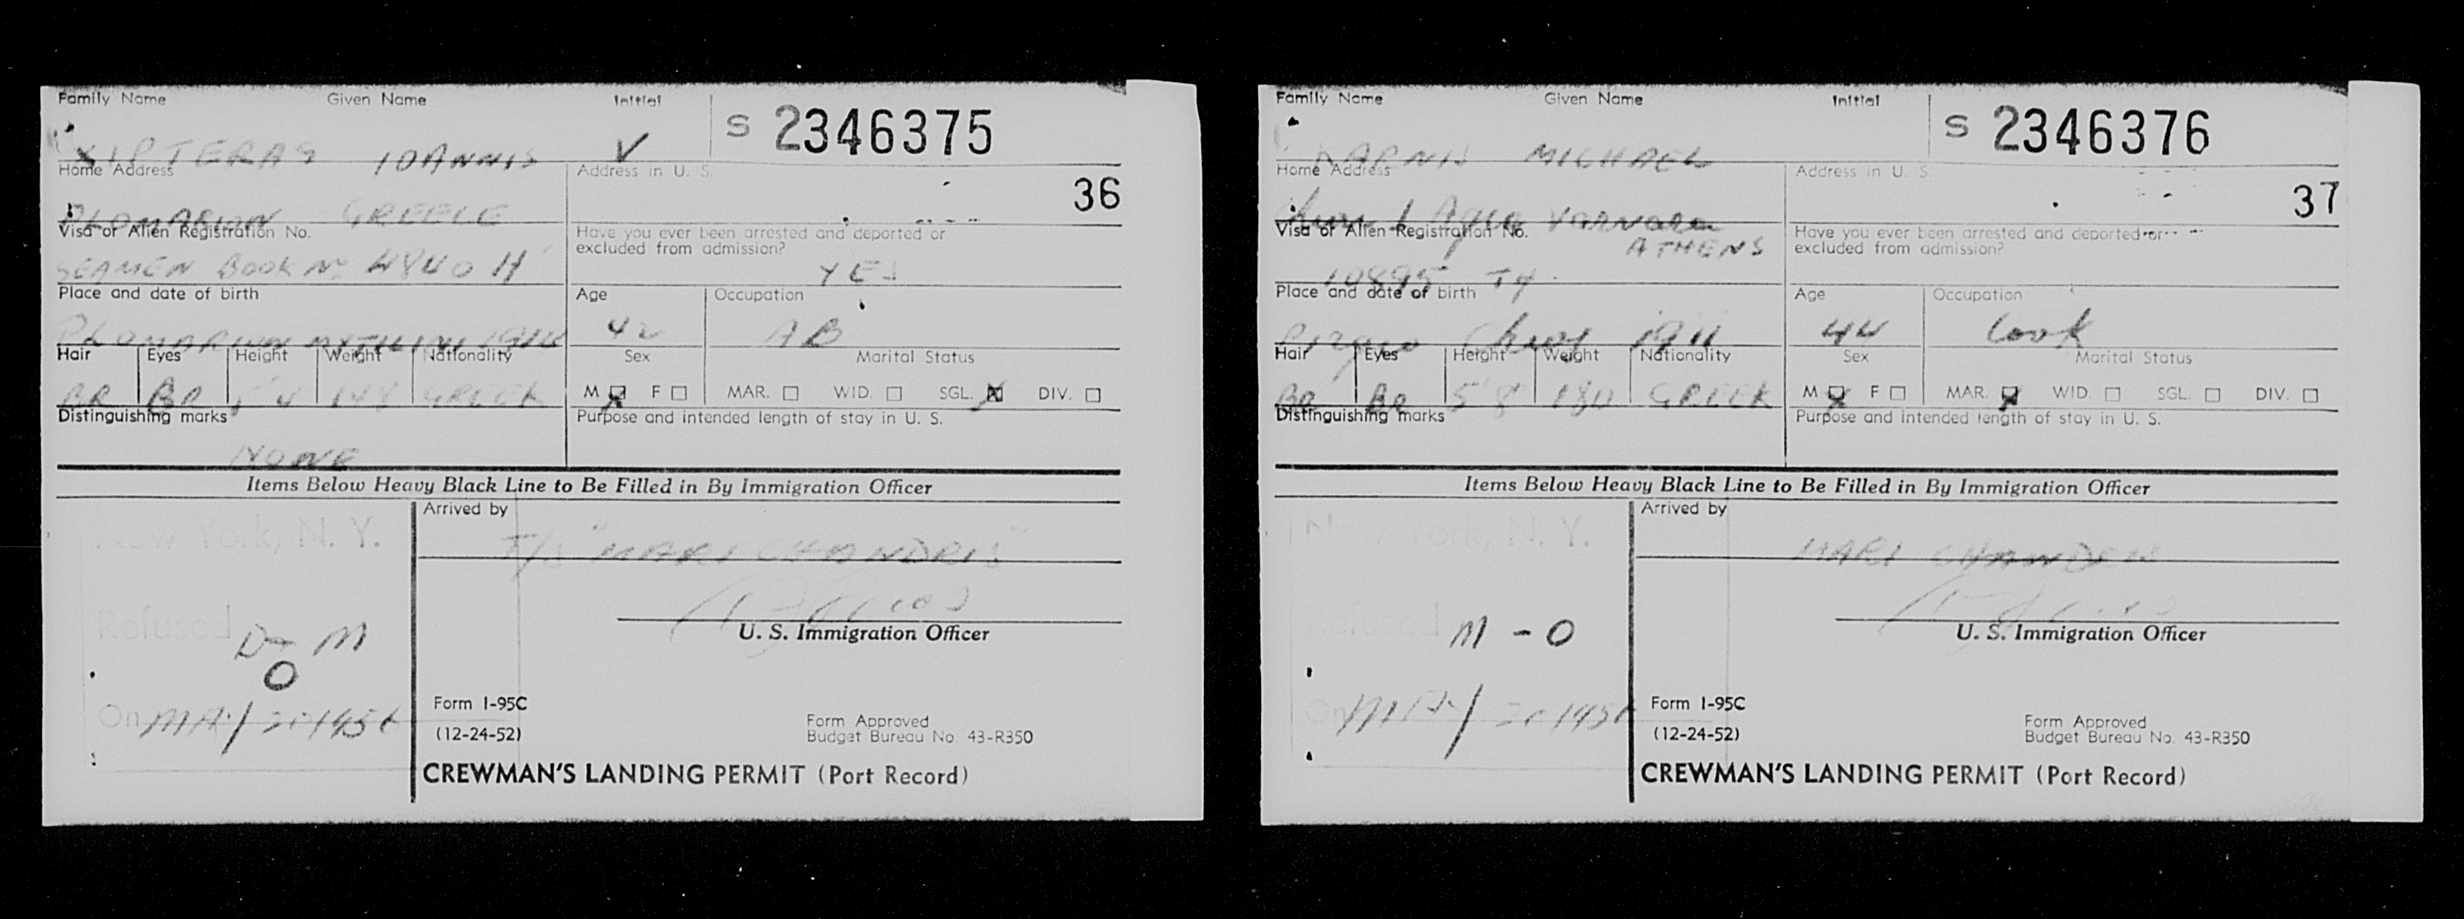 Family Name Given Name Initial
S 2346375
XIPTERAS IOANNIS V
Home Address Address in U. S.
36
PLOMARION GREECE
Visa or Alien Registration No. Have you ever been arrested and deported or
excluded from admission?
SEAMEN BOOK No 4840 H YES
Place and date of birth Age Occupation
PLOMARION MYTILINI 42 AB
Hair Eyes Height Weight Nationality Sex Marital Status
BR BR 5 4 148 GREEK M F MAR. WID. SGL. X DIV.
Distinguishing marks Purpose and intended length of stay in U. S.
NONE
Items Below Heavy Black Line to Be Filled in By Immigration Officer
Arrived by
New York, N. Y.
"MARI CHANDRIS"
Refused
D - M
O
U. S. Immigration Officer
On MAY 1956
Form I-95C
(12-24-52)
Form Approved
Budget Bureau No. 43-R350
CREWMAN'S LANDING PERMIT (Port Record)
Family Name Given Name Initial
S 2346376
MICHAEL
Home Address Address in U. S.
37
Agia Varvara
ATHENS
Visa or Alien Registration No. Have you ever been arrested and deported or
excluded from admission?
10895 T4
Place and date of birth Age Occupation
Chios 1911 44 Cook
Hair Eyes Height Weight Nationality Sex Marital Status
BR BR 5 8 180 GREEK M X F MAR. X WID. SGL. DIV.
Distinguishing marks Purpose and intended length of stay in U. S.
Items Below Heavy Black Line to Be Filled in By Immigration Officer
Arrived by
New York, N. Y.
MARI CHANDRIS
Refused
M - O
U. S. Immigration Officer
On MAY 1956
Form I-95C
(12-24-52)
Form Approved
Budget Bureau No. 43-R350
CREWMAN'S LANDING PERMIT (Port Record)